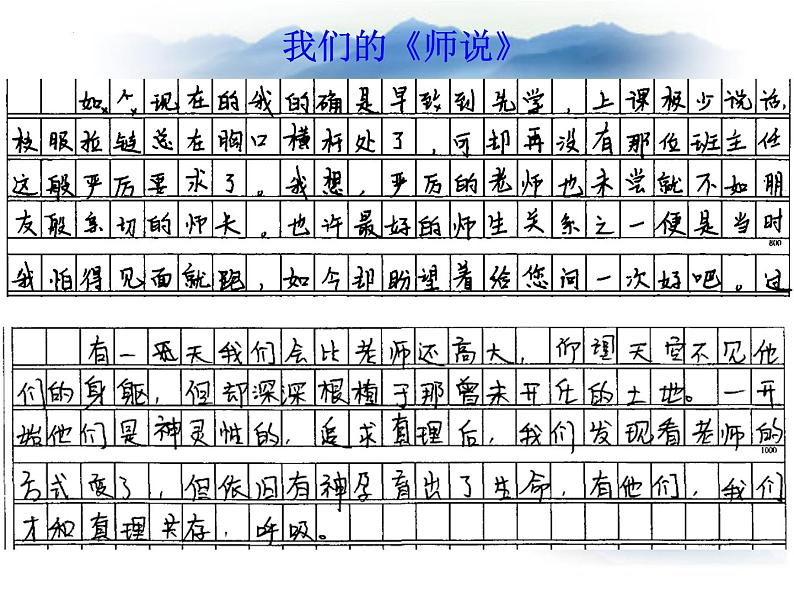 我们的《师说》
如今现在的我的确是早致到先学，上课极少说话，
校服拉链总在胸口横杆处了，可却再没有那位班主任
这般严厉要求了。我想，严厉的老师也未尝就不如朋
友般亲切的师长。也许最好的师生关系之一便是当时
800
我怕得见面就跑，如今却盼望着给您问一次好吧。过
有一天我们会比老师还高大，仰望天空不见他
们的身躯，但却深深根植于那曾未开任的土地。一开
始他们是神灵性的，追求真理后，我们发现看老师的
1000
方式变了，但依旧有神孕育出了生命，有他们，我们
才和真理共存，呼吸。